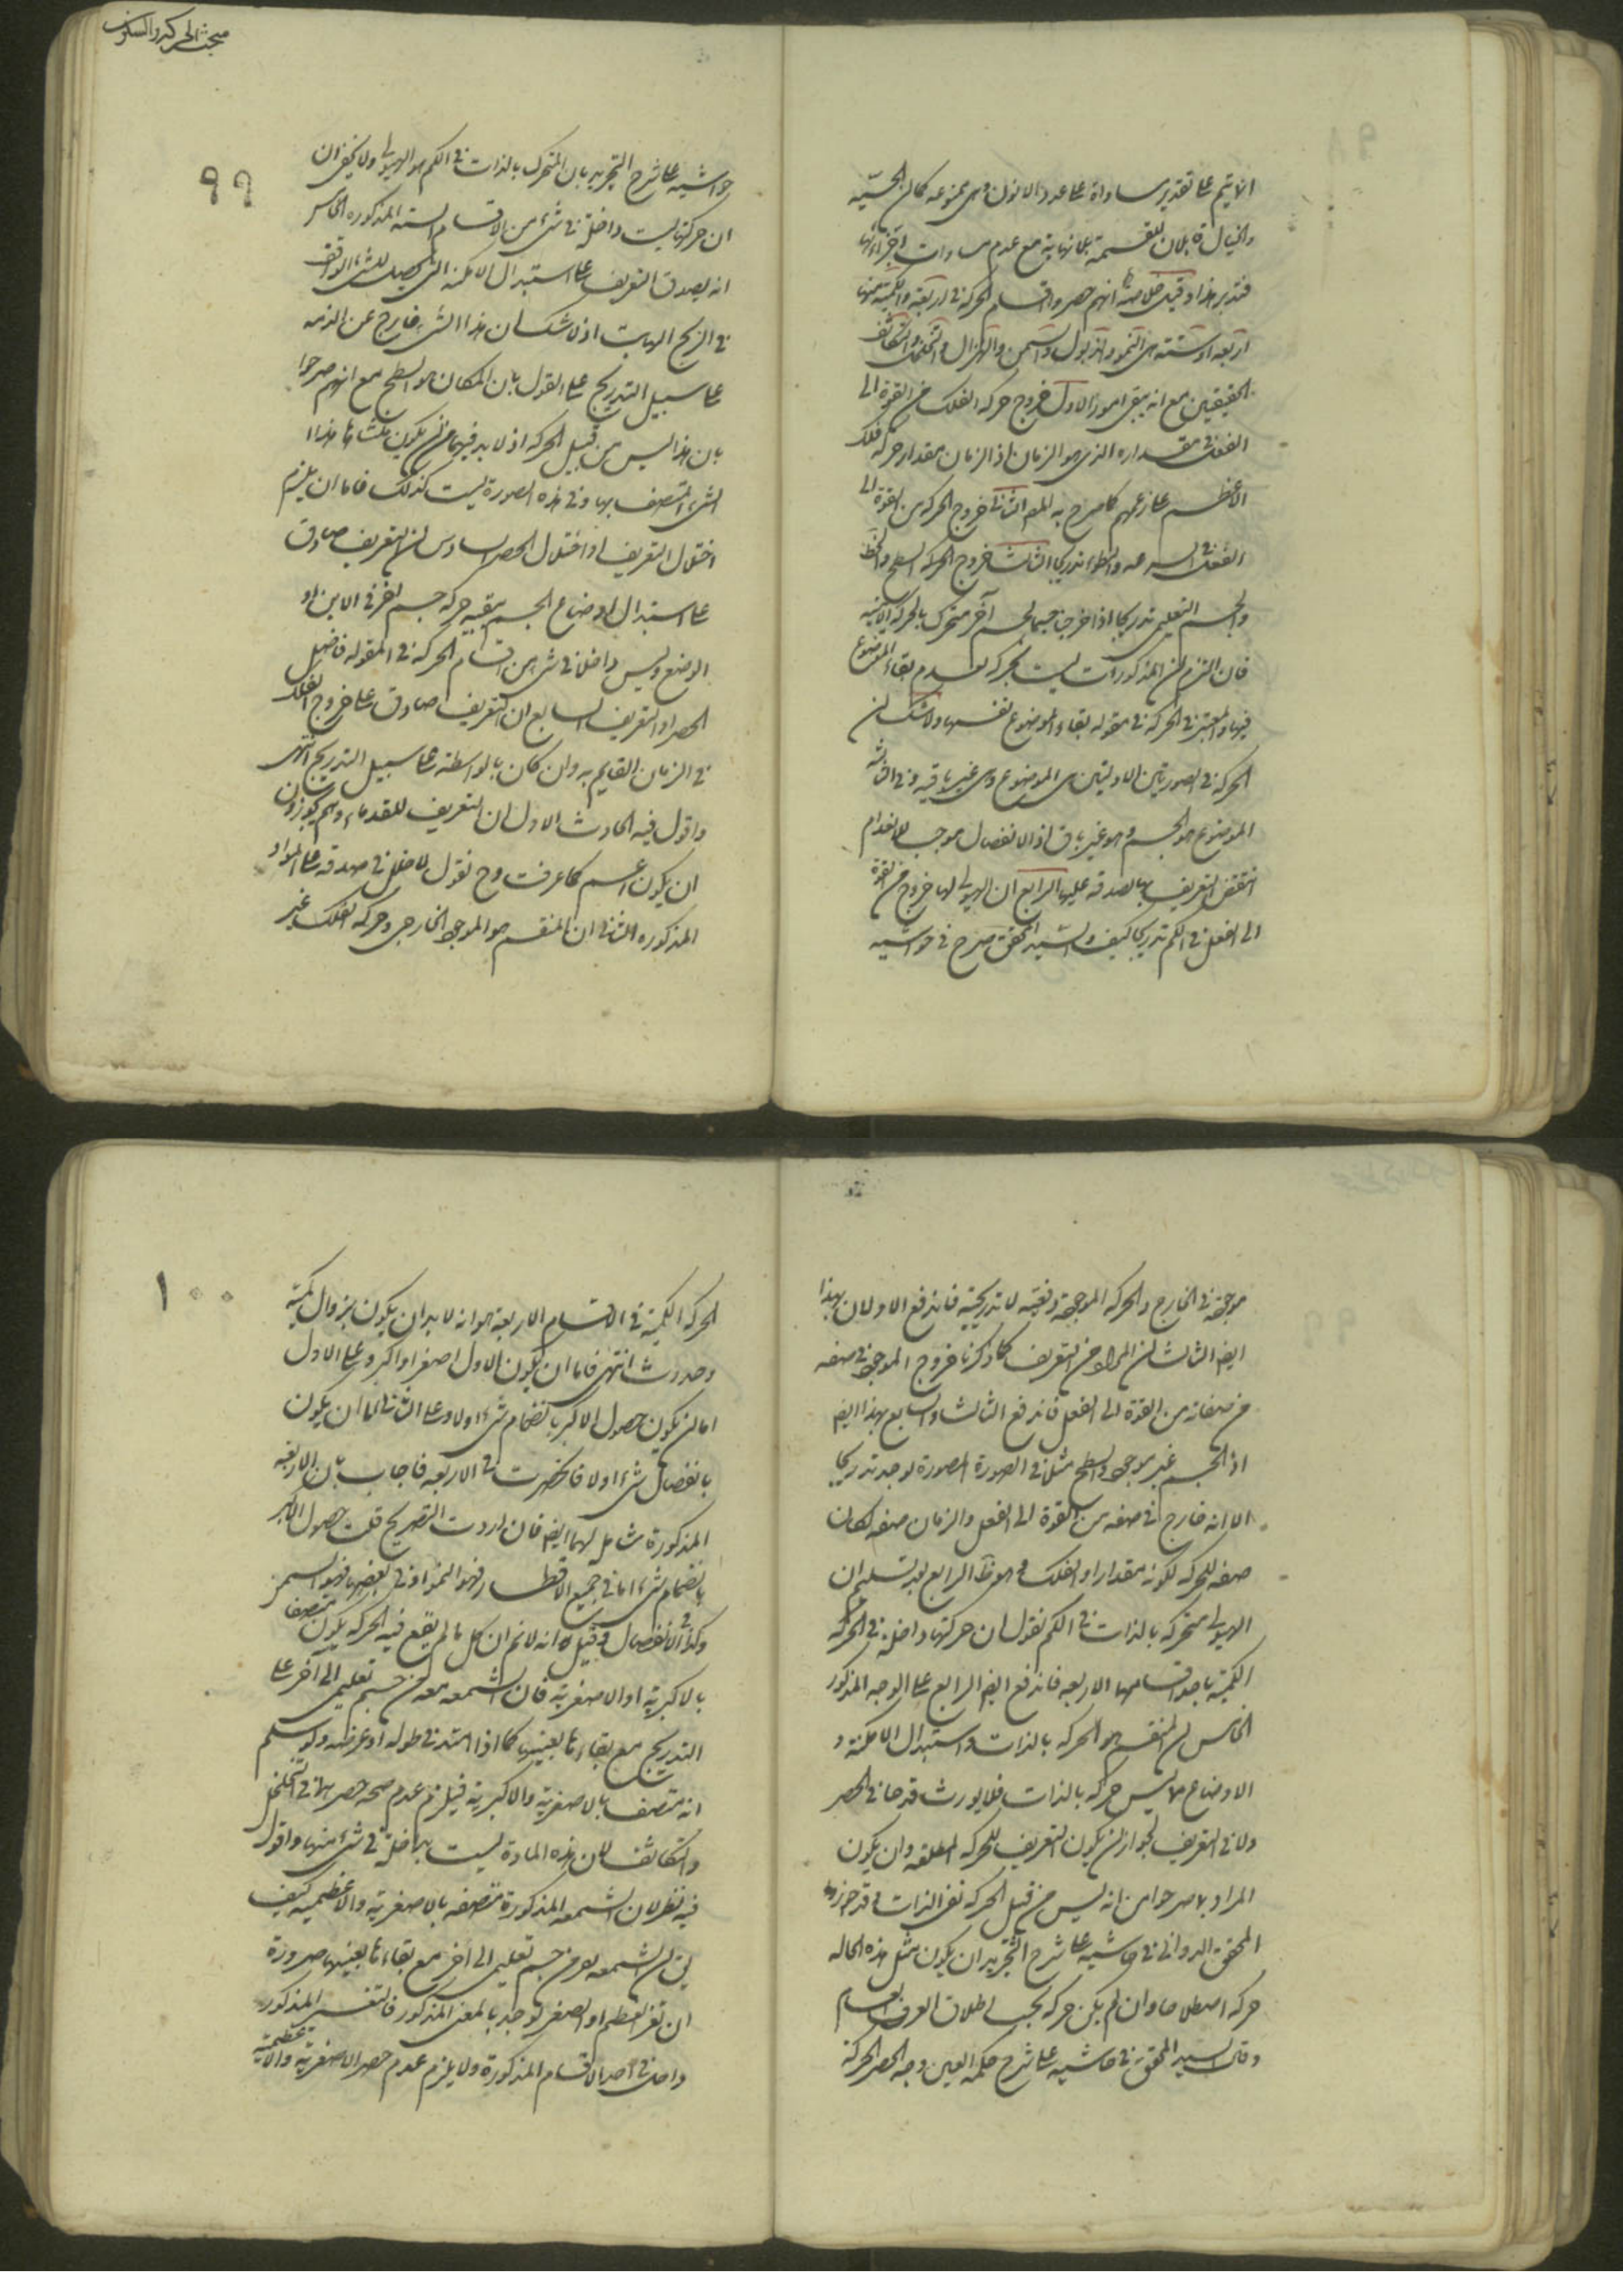 مبحث الحركة والسكون
الا يتم على تقدير مساواة على عدد الاخر
والخيال قابلان للقسمة بلا نهاية مع عدم مساوات اجزائها
فتدبر هذا وقيل انهم حصروا اقسام الحركة في اربعة والكمية منها
اربعة او ستة هي النمو والذبول والسمن والهزال والتخلخل والتكاثف
الحقيقيين مع انه بقي امور الاول خروج حركة الفلك من القوة الى
الفعل في مقداره الذي هو الزمان اذ الزمان مقدار حركة فلك
الاعظم على زعمهم كما صرح به المص الثاني خروج الحركة من القوة الى
الفعل في السرعه والبطوء تدريجا الثالث خروج الحركة السطح والخط
والجسم التعليمي تدريجا اذا خرجت جسم آخر متحرك بالحركة الاينية
فان التزم ان المذكورات ليست بحركة لعدم بقاء الموضوع
فيها والمعتبر في الحركة في مقوله بقاء الموضوع نفسها ولا شك ان
الحركة في الصورتين الاوليتين هي الموضوع وهي غير باقية وفي الثالثه
الموضوع هو الجسم وهو غير باق اذ الانفصال موجب للانعدام
انتقض التعريف بها لصدقه عليها الرابع ان الهيولى لها خروج من القوة
الى الفعل في الكم تدريجا كيف والسيد المحقق صرح في حواشيه
٩٩
حواشيه على شرح التجريد بان المتحرك بالذات في الكم هو الهيولى ولا يخفى ان
ان حركتها ليست داخلة في شيء من الاقسام الستة المذكوره الخامس
انه يصدق التعريف على استبدال الامكنه التي يحصل للشيء الواقف
في الريح الهابت اذ لا شك ان هذا الشيء خارج عن
على سبيل التدريج على القول بان المكان هو السطح مع انهم صرحوا
بان هذا ليس من قبيل الحركه اذ لا بد فيها من ان يكون
الشيء المتصف بها وفي هذه الصورة ليست كذلك فاما ان يلزم
اختلال التعريف او اختلال الحصر السادس ان التعريف صادق
على استبدال اوضاع الجسم بتبعية حركة جسم آخر في الاين او
الوضع وليس داخلا في شيء من اقسام الحركة في المقوله فاختل
الحصر او التعريف السابع ان التعريف صادق على خروج الفلك
في الزمان القايم به وان كان بالواسطة على سبيل التدريج انتهى
واقول فيه ابحاث الاول ان التعريف للقدماء وهم يجوزون
ان يكون اعم كما عرفت وح نقول لا خلل في صدقه على المواد
المذكوره الثاني ان المنقسم هو الموجود الخارجي وحركة الفلك غير
موجودة في الخارج والحركة الموجودة دفعية لا تدريجية فاندفع الاولان بهذا
ايضا الثالث ان المراد من التعريف كما ذكرنا خروج الموجود في صفه
من صفاته من القوة الى الفعل فاندفع الثالث والسابع بهذا ايضا
اذ الجسم غير موجود والسطح مثلا في الصورة المصورة يوجد تدريجا
الا انه خارج في صفه من القوة الى الفعل والزمان صفه لكان
صفه للحركة لكونه مقدارا والفلك الرابع بعد تسليم ان
الهيولى متحركة بالذات في الكم نقول ان حركتها داخلة في الحركة
الكمية باحد اقسامها الاربعه فاندفع ايضا الرابع على الوجه المذكور
الخامس ان المنقسم هو الحركة بالذات واستبدال الامكنة و
الاوضاع ليس حركة بالذات فلا يورث قدحا في الحصر
ولا في التعريف لجواز ان يكون التعريف للحركة المطلقه وان يكون
المراد مما صرحوا من انه ليس من قبيل الحركة نفي الذات وقد جوز
المحقق الدواني في حاشيته على شرح التجريد ان يكون مثل هذه الحاله
حركة اصطلاحا وان لم يكن حركة بحسب اطلاق العرف العام
وقال السيد المحقق في حاشيته على شرح حكمة العين وجه الحصر الحركة
١٠٠
الحركة الكمية في الاقسام الاربعة هو انه لا بد ان يكون بزوال كمية
وحدوث انتهى فاما ان يكون الاول اصغر او اكبر وعلى الاول
اما ان يكون حصول الاكبر بانضمام شيء اولا وعلى الثاني اما ان يكون
بانفصال شيء اولا فانحصرت في الاربعه فاجاب بان الاربعه
المذكورة شامل لهما ايضا فان اردت التصريح قلت حصول الاكبر
بانضمام شيء اما في جميع الاقطار فهو النمو او في بعضها فهو السمن
وكذا في الانفصال وقيل انه لا نم ان كل ما لم يقع فيه الحركة يكون متصفا
بالاكبرية او الاصغرية فان الشمعه من جسم تعليمي الى آخر على
التدريج مع بقاءها بعينها كما اذا امتد في طوله او عرضه ولو سلم
انه متصف بالاصغرية والاكبرية فيلزم عدم صحة حصرها في التخلخل
والتكاثف لان هذه المادة ليست بداخلة في شيء منها واقول
فيه نظر لان الشمعه المذكورة متصفه بالاصغرية والاعظميه كيف
ان الشمعه من جسم تعليمي الى آخر مع بقاءها بعينها ضرورة
ان تغير العظم او الصغر يوجد بالمعنى المذكور فالتغير المذكور
داخل في احد الاقسام المذكورة ولا يلزم عدم حصر الاصغرية والاعظمية